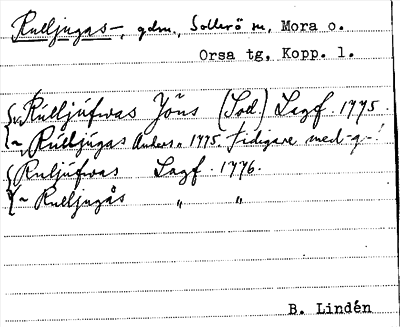 Rulljugas-, gdn., Sollerö sn, Mora o.
Orsa tg, Kopp. l.
Rúlljúfwas Jöns (Sod.) Lagf. 1775.
~ Rúlljúgas Anders " 1775. Tidigare med -g-!
Ruljúfwas Lagf. 1776.
~ Rulljugås " "
B. Lindén